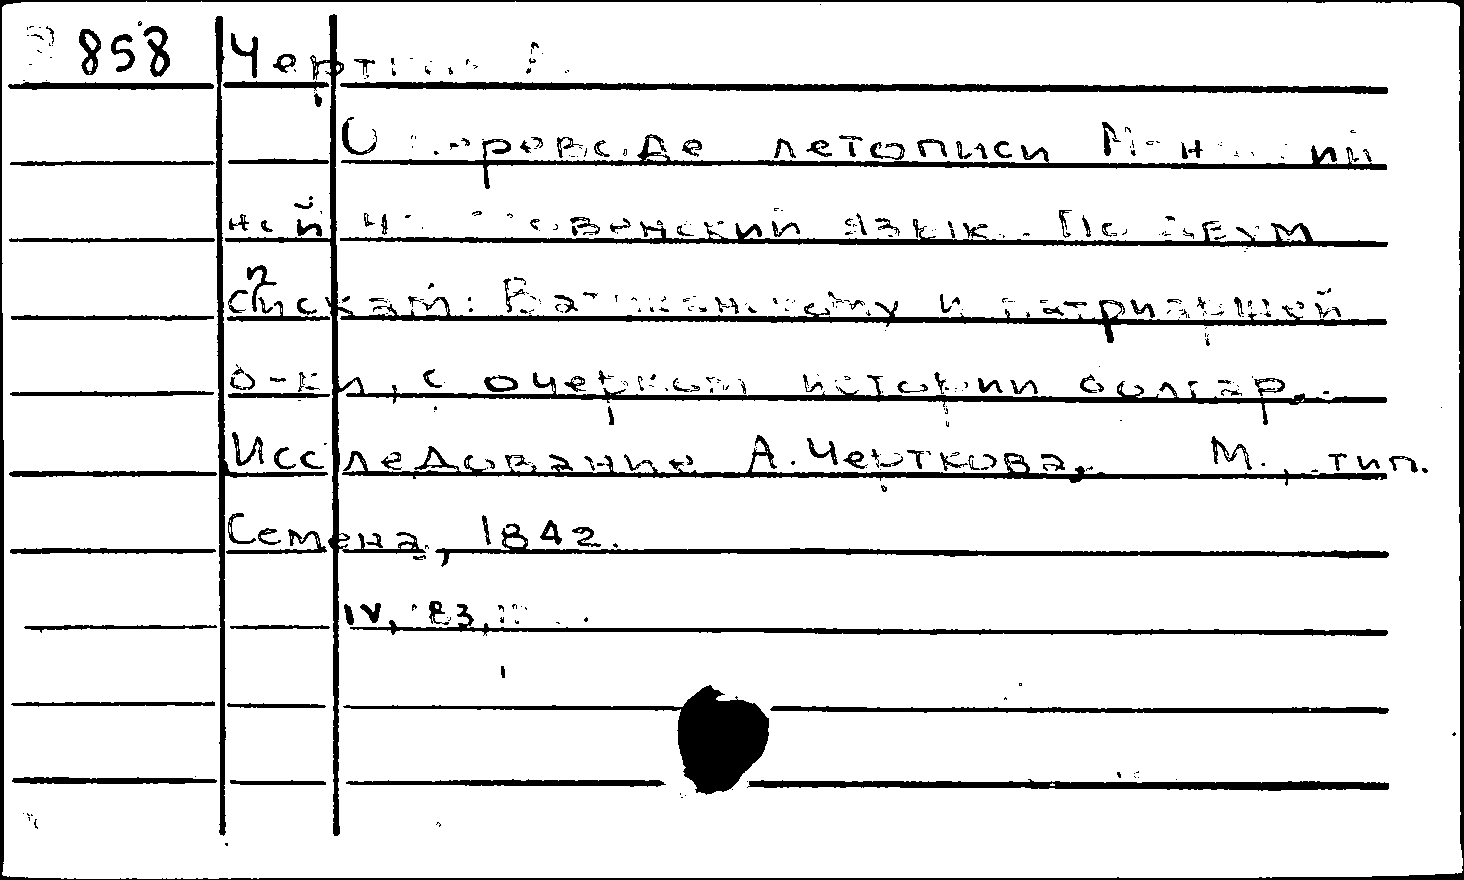 858 Чертков А.
О переводе летописи Манассии
ной на словенский язык. По двум
спискам: Ватиканскому и патриаршей
б-ки, с очерком истории болгар.
Исследование А. Черткова, М., тип.
Семена, 1842.
IV,